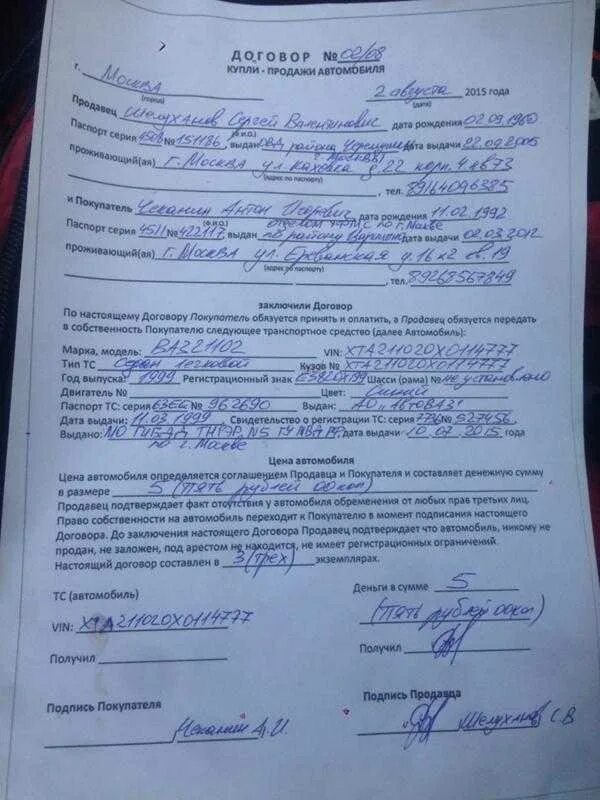 ДОГОВОР № 02/08
КУПЛИ - ПРОДАЖИ АВТОМОБИЛЯ
г. Москва 2 августа 2015 года
(город) (дата)
Продавец Шелуханов Сергей Валентинович дата рождения 02.09.1960
(Ф.И.О.)
Паспорт серия № 151186, выдан ОВД района Черемушки г. Москвы дата выдачи 22.09.2005
проживающий(ая) г. Москва ул Каховка д 22 корп. 4 кв 73
(адрес по паспорту)
, тел. 89164096385
и Покупатель Чеканин Антон Игоревич дата рождения 11.02.1992
(Ф.И.О.)
Паспорт серия 4511 № 422117, выдан отделом УФМС по г. Москве по району дата выдачи 02.03.2012
проживающий(ая) г. Москва ул. Ереванская д. 16 к2 кв. 19
(адрес по паспорту)
, тел. 89268567849
заключили Договор
По настоящему Договору Покупатель обязуется принять и оплатить, а Продавец обязуется передать
в собственность Покупателю следующее транспортное средство (далее Автомобиль):
Марка, модель: ВАЗ 21102 VIN: XTA211020X0114777
Тип ТС Седан легковой Кузов № XTA211020X0114777
Год выпуска: 1999 Регистрационный знак Шасси (рама) № не установлено
Двигатель № Цвет: Синий
Паспорт ТС: серия 63ЕЕ № 962690 Выдан: АО "АвтоВАЗ"
Дата выдачи: 11.03.1999 Свидетельство о регистрации ТС: серия 7736 № 527456
Выдано: МО ГИБДД ТНРЭР №5 ГУ МВД РФ по г. Москве дата выдачи 10.07.2015 года
Цена автомобиля
Цена автомобиля определяется соглашением Продавца и Покупателя и составляет денежную сумму
в размере 5 (пять рублей 00 коп)
Продавец подтверждает факт отсутствия у автомобиля обременения от любых прав третьих лиц.
Право собственности на автомобиль переходит к Покупателю в момент подписания настоящего
Договора. До заключения настоящего Договора Продавец подтверждает что автомобиль, никому не
продан, не заложен, под арестом не находится, не имеет регистрационных ограничений.
Настоящий договор составлен в 3 (трех) экземплярах.
ТС (автомобиль) Деньги в сумме 5
VIN: XTA211020X0114777 (пять рублей 00 коп)
Получил Получил
Подпись Покупателя Подпись Продавца
Чеканин А.И. Шелуханов С.В